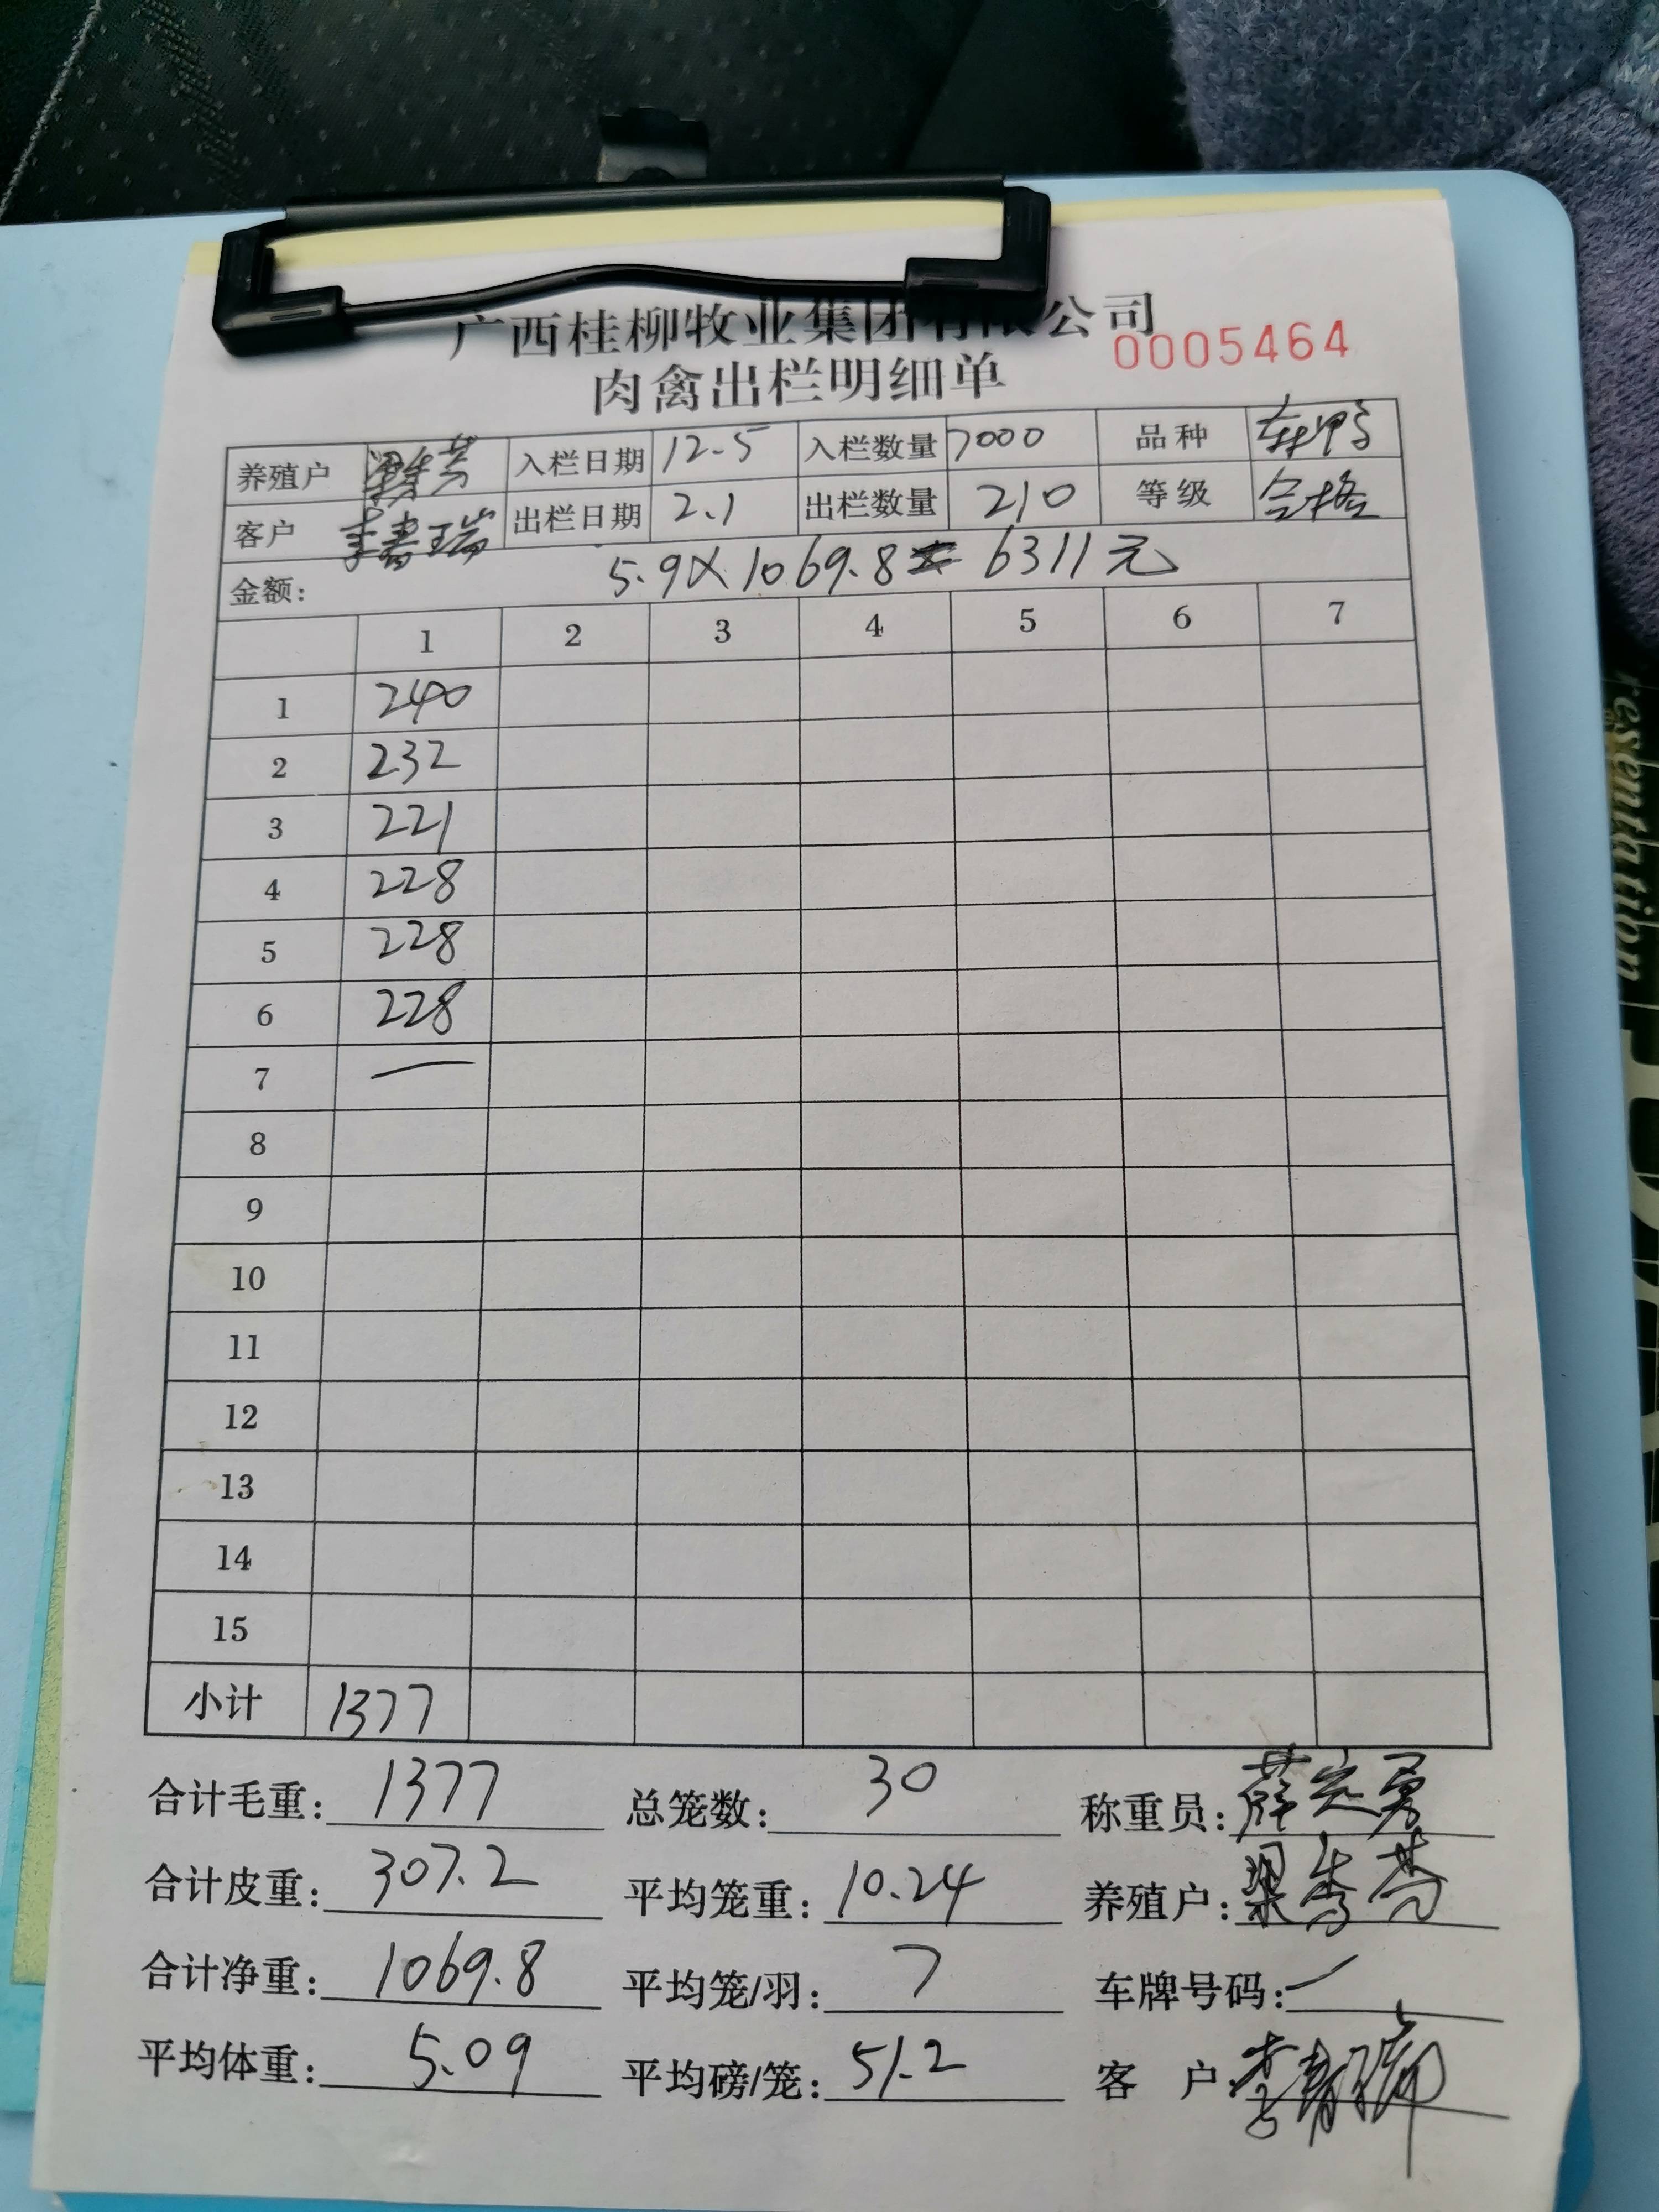 广西桂柳牧业集团有限公司
0005464
肉禽出栏明细单
养殖户 入栏日期 12.5 入栏数量 7000 品种
客户 李青瑞 出栏日期 2.1 出栏数量 210 等级 合格
金额: 5.9×1069.8= 6311元
1 2 3 4 5 6 7
1 240
2 232
3 221
4 228
5 228
6 228
7 —
8
9
10
11
12
13
14
15
小计 1377
合计毛重: 1377 总笼数: 30 称重员: 薛定勇
合计皮重: 307.2 平均笼重: 10.24 养殖户:
合计净重: 1069.8 平均笼/羽: 7 车牌号码: —
平均体重: 5.09 平均磅/笼: 51.2 客 户:
resentation